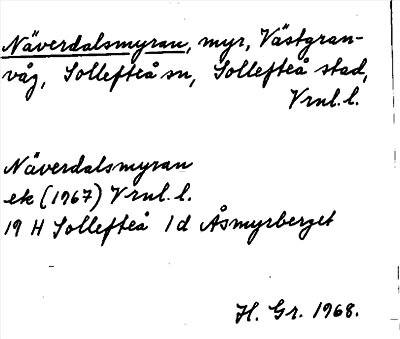 Näverdalsmyran, myr, Västgran-
våg, Sollefteå sn, Sollefteå stad,
Vrnl. l.
Näverdalsmyran
ek (1967) Vrnl. l.
19 H Sollefteå 1d Åsmyrberget
H. Gr. 1968.